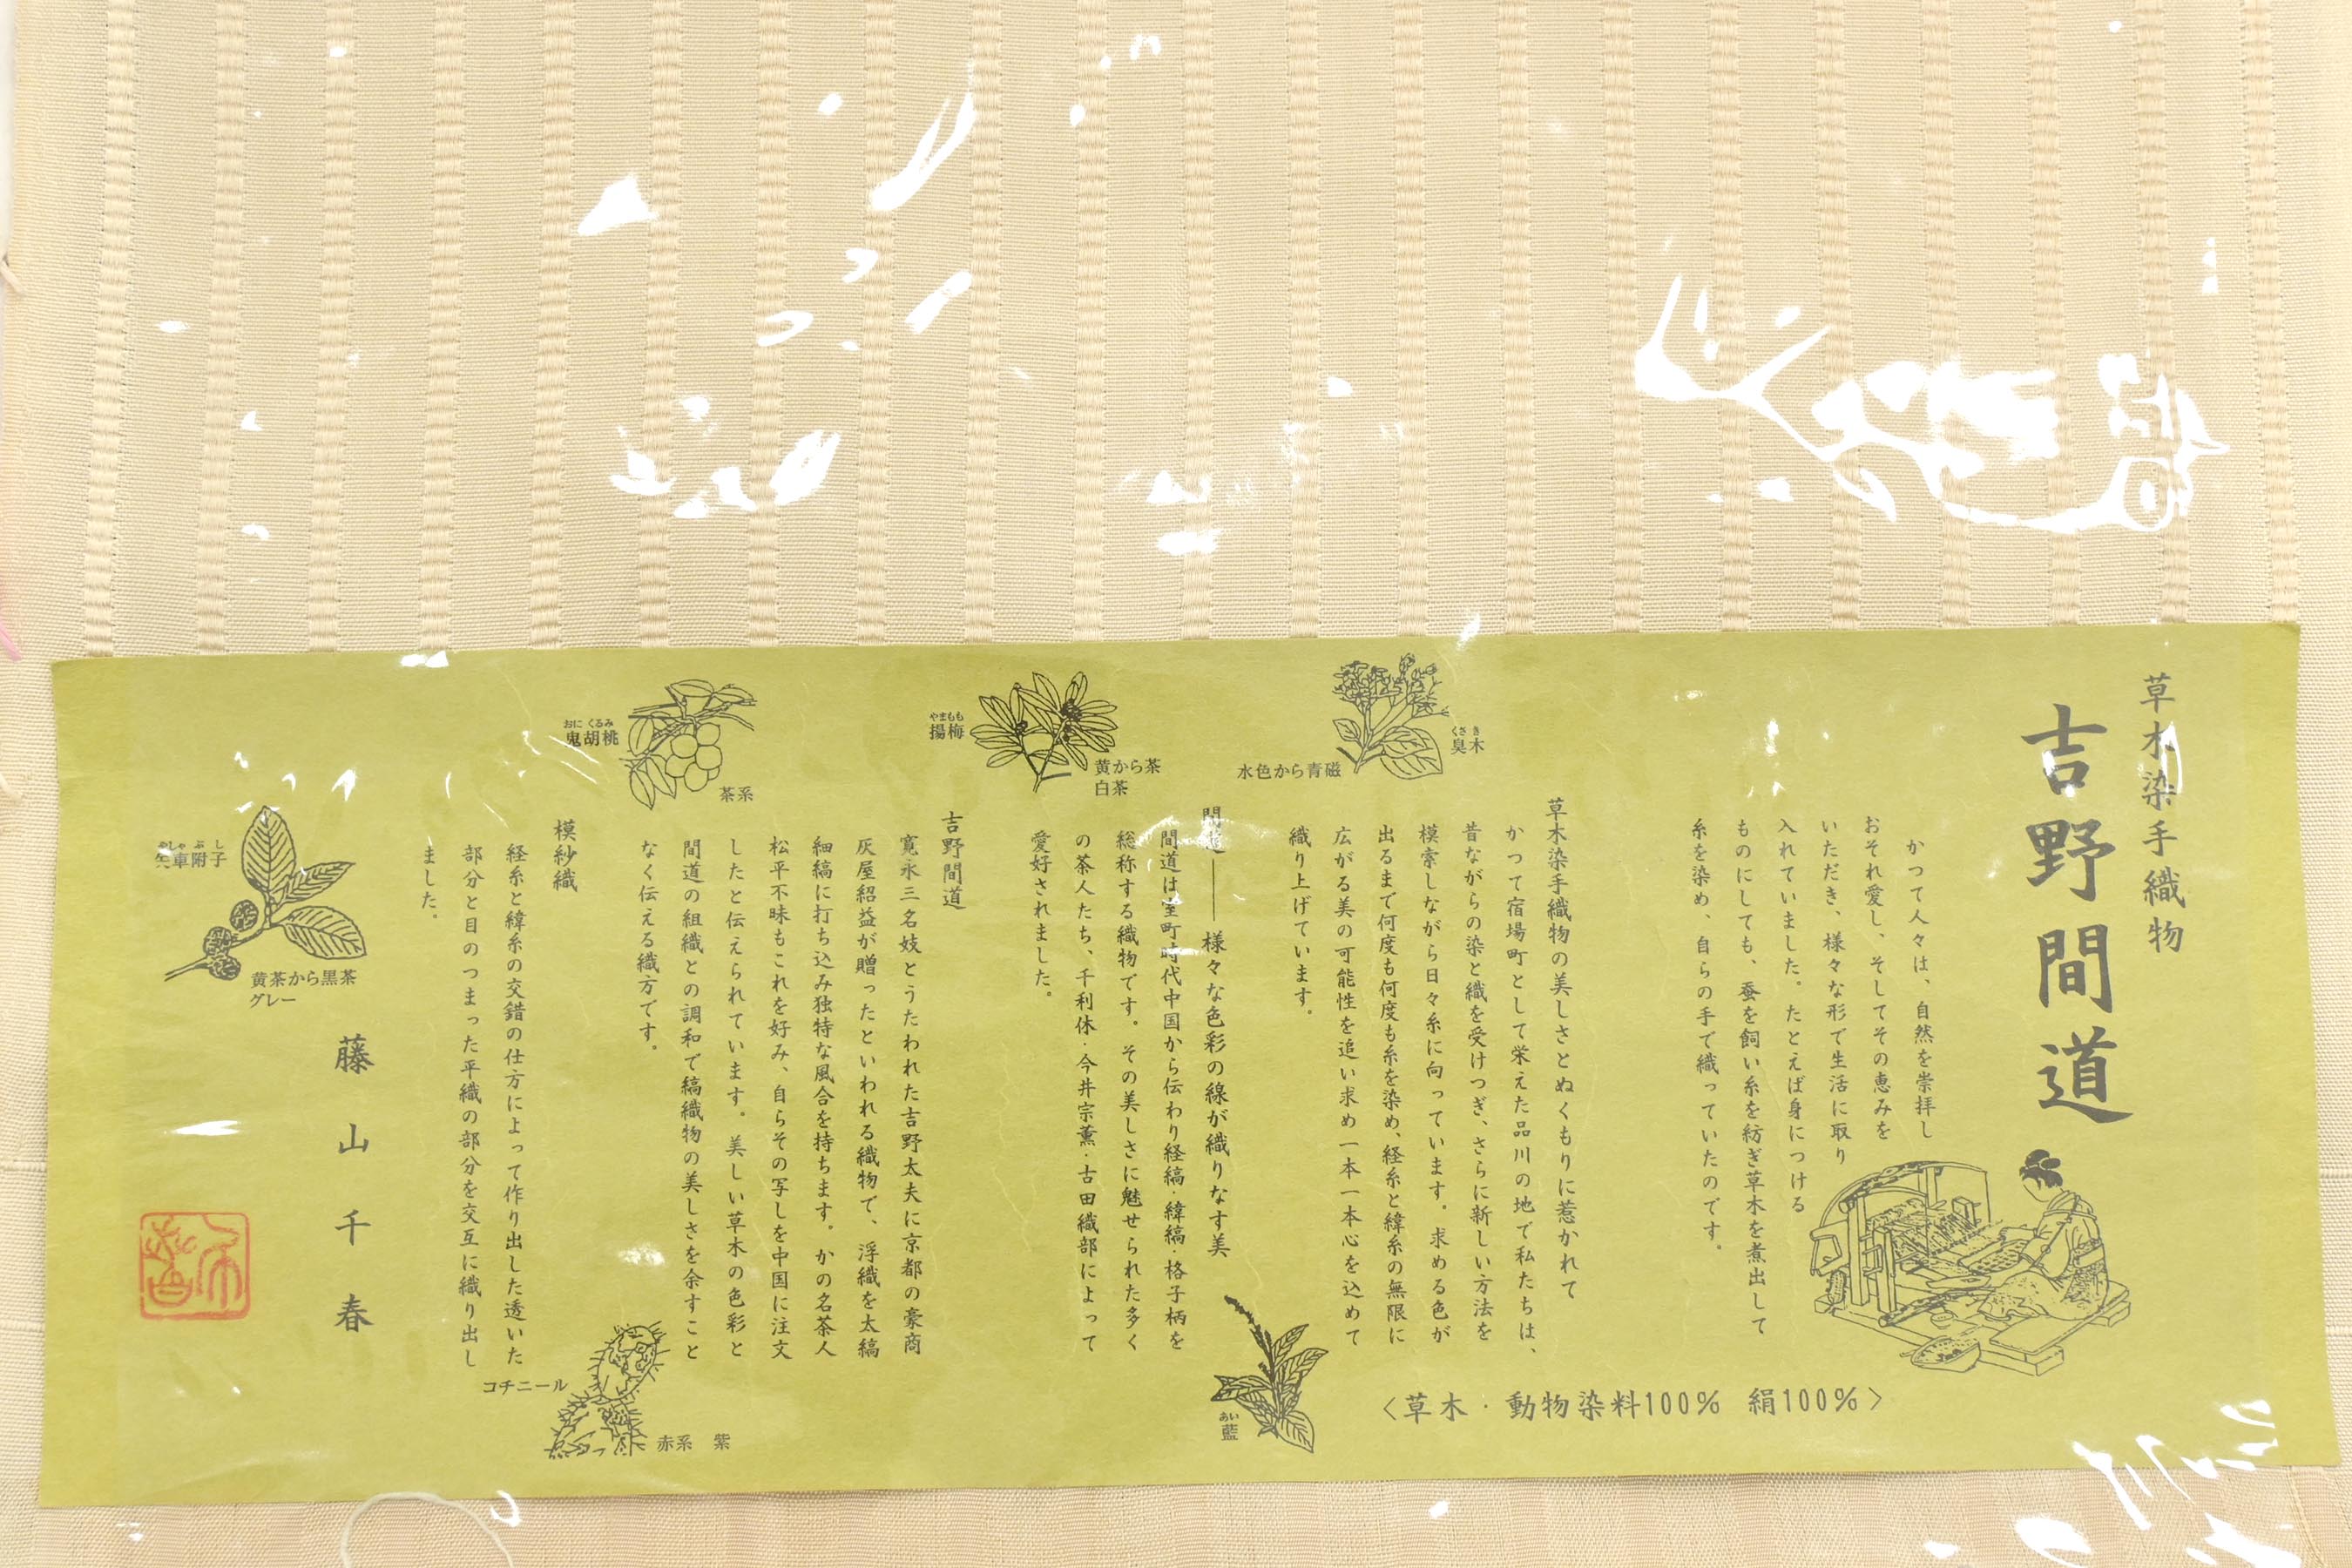 草木染手織物
吉野間道
かつて人々は、自然を崇拝し
おそれ愛し、そしてその恵みを
いただき、様々な形で生活に取り
入れていました。たとえば身につける
ものにしても、蚕を飼い糸を紡ぎ草木を煮出して
糸を染め、自らの手で織っていたのです。
〈草木・動物染料100% 絹100%〉
くさき
臭木
水色から青磁
草木染手織物の美しさとぬくもりに惹かれて
かつて宿場町として栄えた品川の地で私たちは、
昔ながらの染と織を受けつぎ、さらに新しい方法を
模索しながら日々糸に向っています。求める色が
出るまで何度も何度も糸を染め、経糸と緯糸の無限に
広がる美の可能性を追い求め一本一本心を込めて
織り上げています。
あい
藍
間道――様々な色彩の線が織りなす美
間道は室町時代中国から伝わり経縞・緯縞・格子柄を
総称する織物です。その美しさに魅せられた多く
の茶人たち、千利休・今井宗薫・古田織部によって
愛好されました。
やまもも
揚梅
黄から茶
白茶
吉野間道
寛永三名妓とうたわれた吉野太夫に京都の豪商
灰屋紹益が贈ったといわれる織物で、浮織を太縞
細縞に打ち込み独特な風合を持ちます。かの名茶人
松平不昧もこれを好み、自らその写しを中国に注文
したと伝えられています。美しい草木の色彩と
間道の組織との調和で縞織物の美しさを余すこと
なく伝える織方です。
おにくるみ
鬼胡桃
茶系
模紗織
経糸と緯糸の交錯の仕方によって作り出した透いた
部分と目のつまった平織の部分を交互に織り出し
ました。
コチニール
赤系 紫
やしゃぶし
矢車附子
黄茶から黒茶
グレー
藤山千春